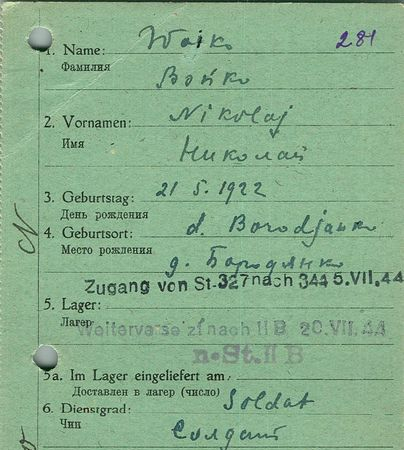 1. Name: Woiko 281
Фамилия Войко
2. Vornamen: Nikolaj
Имя Николай
3. Geburtstag: 21 5. 1922
День рождения
4. Geburtsort: d. Borodjanko
Место рождения д. Бородянко
Zugang von St-327 nach 344 5.VII.44
5. Lager:
Лагер
nach II B 20.VII.44
n. St. II B
5a. Im Lager eingeliefert am
Доставлен в лагер (число)
6. Dienstgrad: Soldat
Чип Солдат